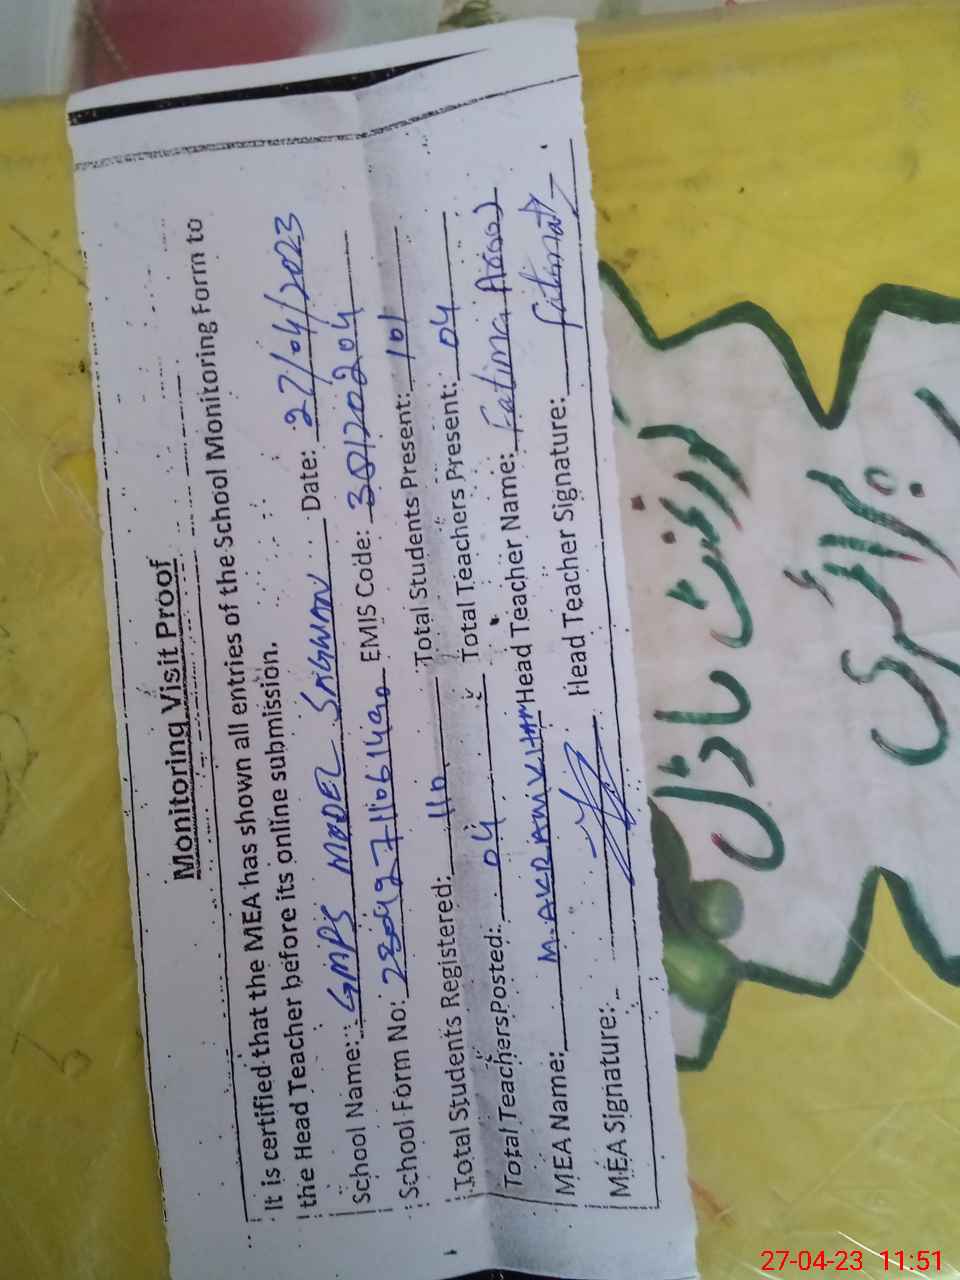 Monitoring Visit Proof
It is certified that the MEA has shown all entries of the School Monitoring Form to
the Head Teacher before its online submission.
School Name: GMPS MODEL SAGWAN Date: 27/04/2023
School Form No: EMIS Code:
Total Students Registered: 110 Total Students Present: 101
Total Teachers Posted: 04 Total Teachers Present: 04
MEA Name: M. AKRAM Head Teacher Name: Fatima
MEA Signature: Head Teacher Signature:
گورنمنٹ ماڈل
پرائمری
27-04-23 11:51